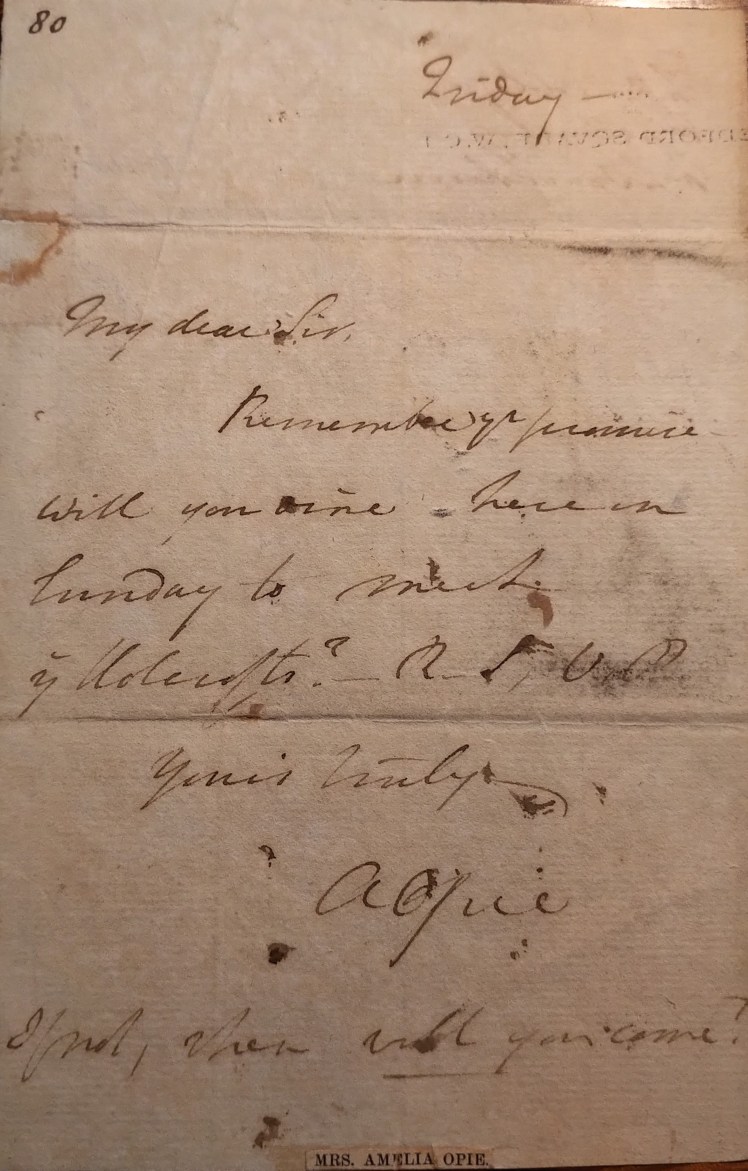 80
Friday —
EDFORD SQUARE, W.C.1
My dear Sir,
Remember yr promise
will you dine here on
Sunday to meet
ye Holcrofts? — R. S, V. P.
Yours truly
A Opie
If not, when will you come?
MRS. AMELIA OPIE.